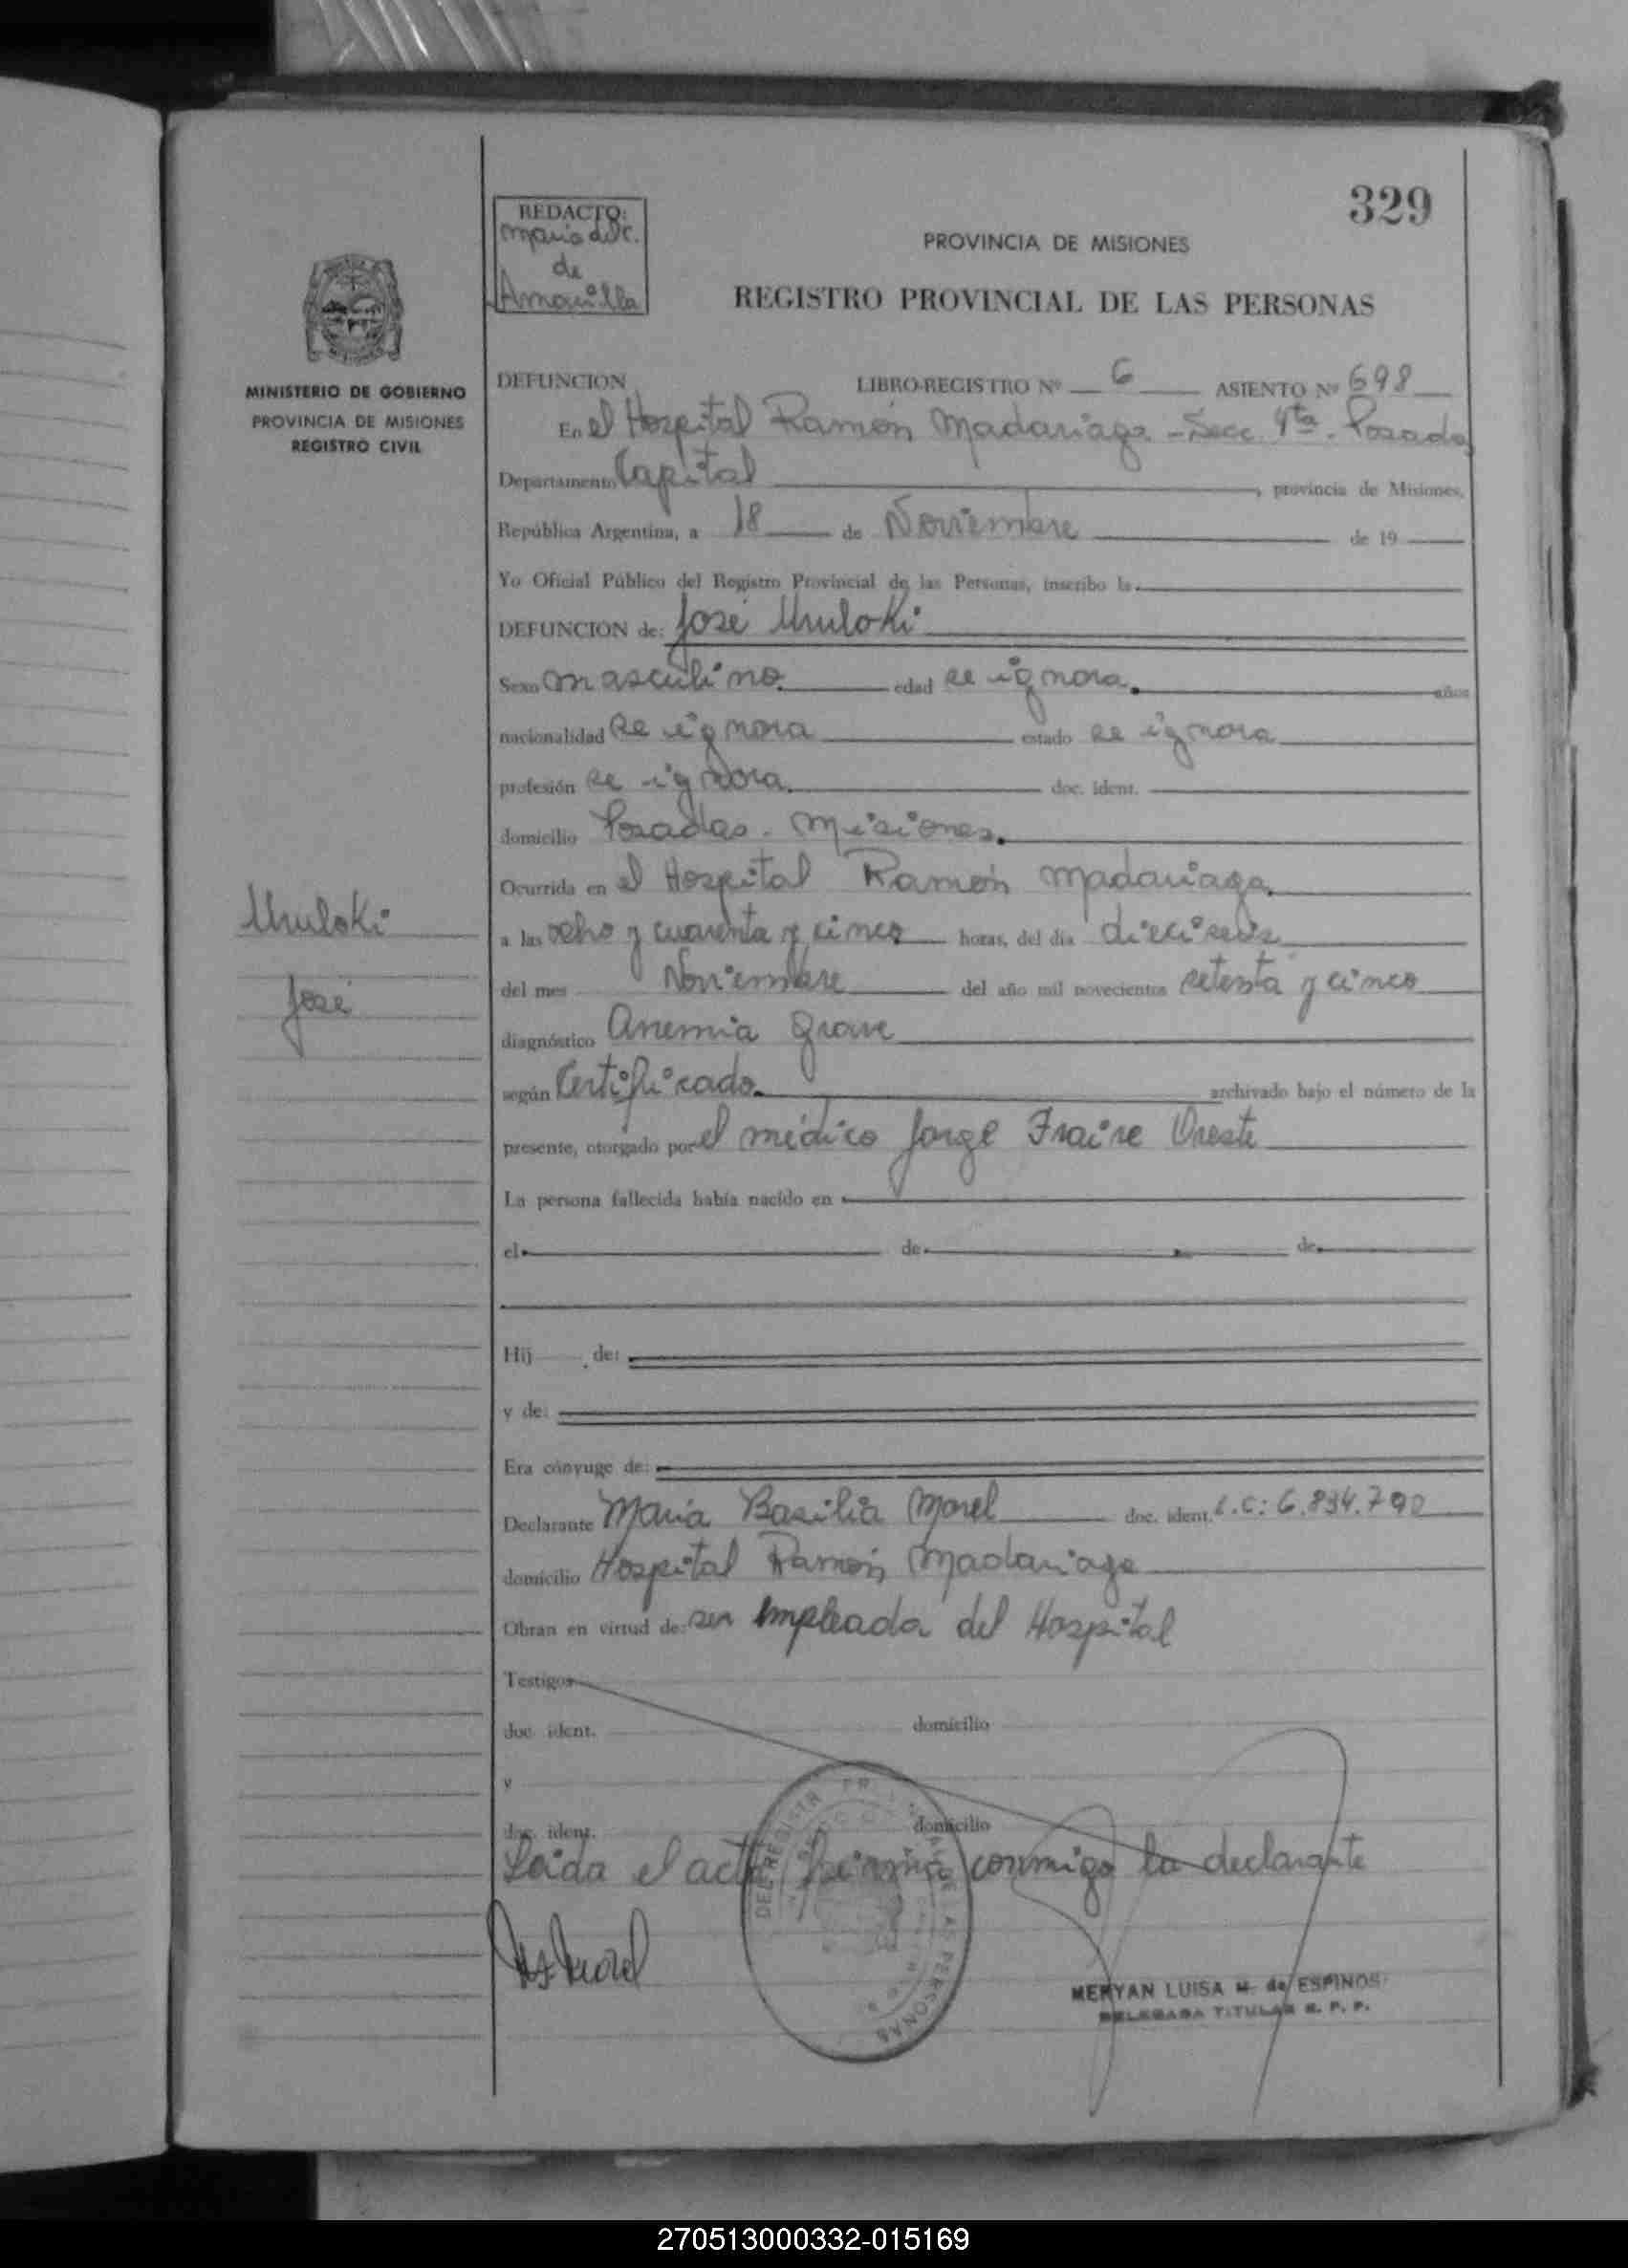 329
REDACTO:
Maria del C.
de
Amarilla
PROVINCIA DE MISIONES
REGISTRO PROVINCIAL DE LAS PERSONAS
MINISTERIO DE GOBIERNO
PROVINCIA DE MISIONES
REGISTRO CIVIL
DEFUNCION LIBRO-REGISTRO Nº 6 ASIENTO Nº 698
En el Hospital Ramón Madariaga - Secc. 4ta. Posadas
Departamento Capital, provincia de Misiones,
República Argentina, a 18 de Noviembre de 19
Yo Oficial Público del Registro Provincial de las Personas, inscribo la
DEFUNCION de: José
Sexo masculino. edad se ignora. años
nacionalidad se ignora estado se ignora
profesión se ignora. doc. ident.
domicilio Posadas. Misiones.
Ocurrida en el Hospital Ramón Madariaga.
a las ocho y cuarenta y cinco horas, del día dieciseis
del mes Noviembre del año mil novecientos setenta y cinco
José
diagnóstico Anemia grave
según Certificado. archivado bajo el número de la
presente, otorgado por el médico Jorge Fraire Oreste
La persona fallecida había nacido en
el de de
Hij de:
y de:
Era cónyuge de:
Declarante María Basilia Morel doc. ident. L.C: 6.834.790
domicilio Hospital Ramón Madariaga
Obran en virtud de: ser empleada del Hospital
Testigos
doc. ident. domicilio
y
doc. ident. domicilio
Leída el acta firma conmigo la declarante
MERYAN LUISA M. de ESPINOSA
DELEGADA TITULAR R. P. P.
270513000332-015169